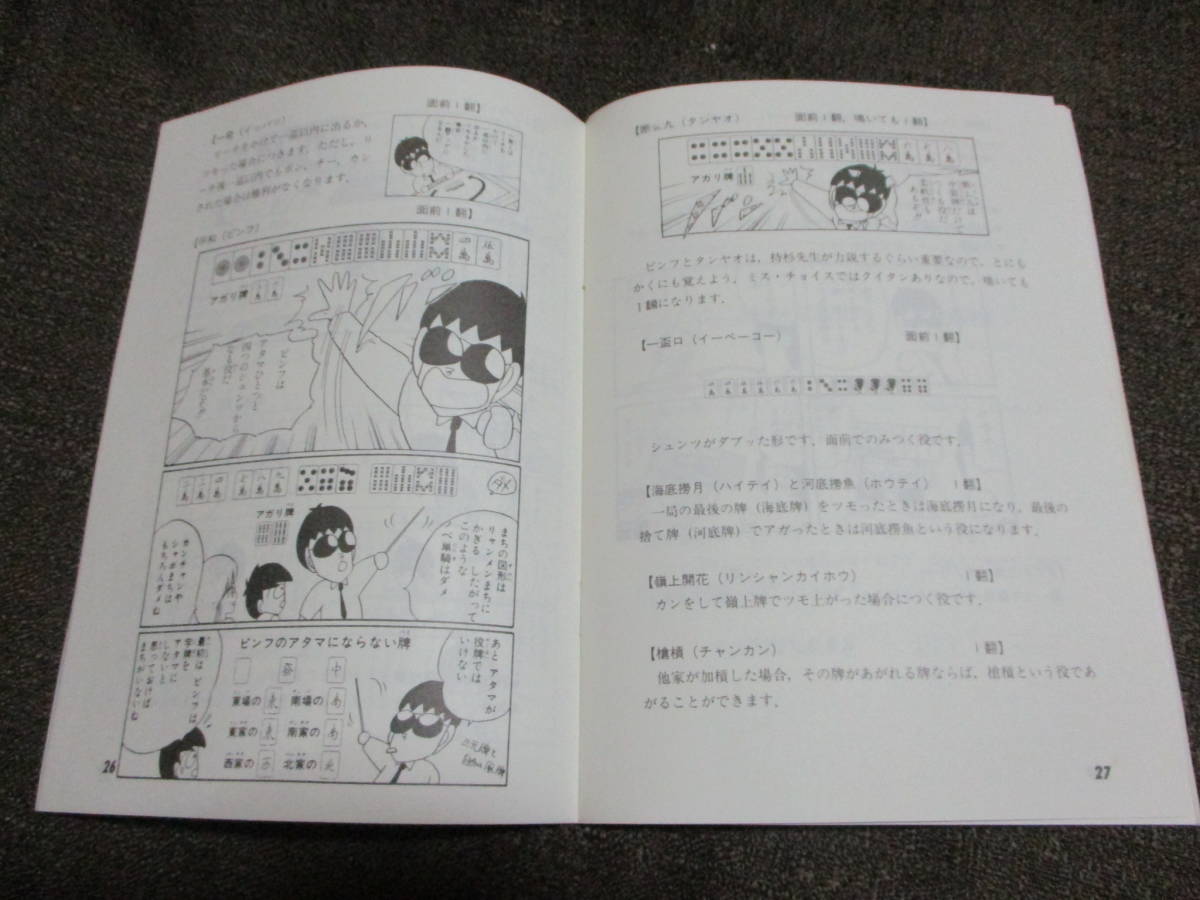 【一発（イッパツ） 面前1翻】
リーチをかけて一巡以内に出るか、
ツモった場合につきます。ただし、リ
ーチ後一巡以内でもポン、チー、カン
された場合は権利がなくなります。
【平和（ピンフ） 面前1翻】
アガリ牌
ピンフは
アタマひとつと
四つのシュンツから
なる役だ
まちの図形は
リャンメンまちに
かぎる したがって
このような
ノベ単騎はダメ
アガリ牌
カンチャンや
シャボまちは
もちろんダメね
あと アタマが
役牌では
いけない
ピンフのアタマにならない牌
發 中
東場の 東 南場の 南
東家の 東 南家の 南
西家の 西 北家の 北
最初は ピンフは
字牌を
アタマに
しないと
思っておけば
まちがいないね
26
【断么九（タンヤオ） 面前1翻、鳴いても1翻】
アガリ牌
ピンフとタンヤオは、持杉先生が力説するぐらい重要なので、とにも
かくにも覚えよう。ミス・チョイスではクイタンありなので、鳴いても
1翻になります。
【一盃口（イーペーコー） 面前1翻】
シュンツがダブッた形です。面前でのみつく役です。
【海底撈月（ハイテイ）と河底撈魚（ホウテイ） 1翻】
一局の最後の牌（海底牌）をツモったときは海底撈月になり、最後の
捨て牌（河底牌）でアガったときは河底撈魚という役になります。
【嶺上開花（リンシャンカイホウ） 1翻】
カンをして嶺上牌でツモ上がった場合につく役です。
【槍槓（チャンカン） 1翻】
他家が加槓した場合、その牌があがれる牌ならば、槍槓という役であ
がることができます。
27